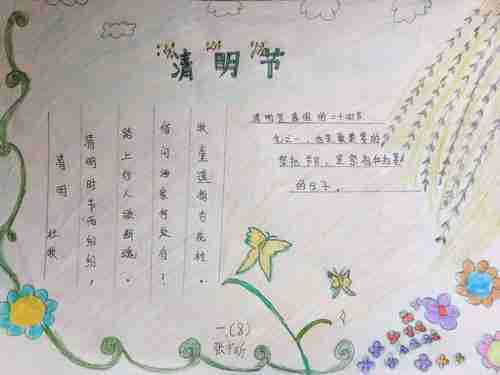 清明节
清明 杜牧
清明时节雨纷纷，
路上行人欲断魂。
借问酒家何处有？
牧童遥指杏花村。
清明是我国的二十四节
气之一，也是最重要的
祭祀节日，是祭祖和扫墓
的日子。
一.(8)